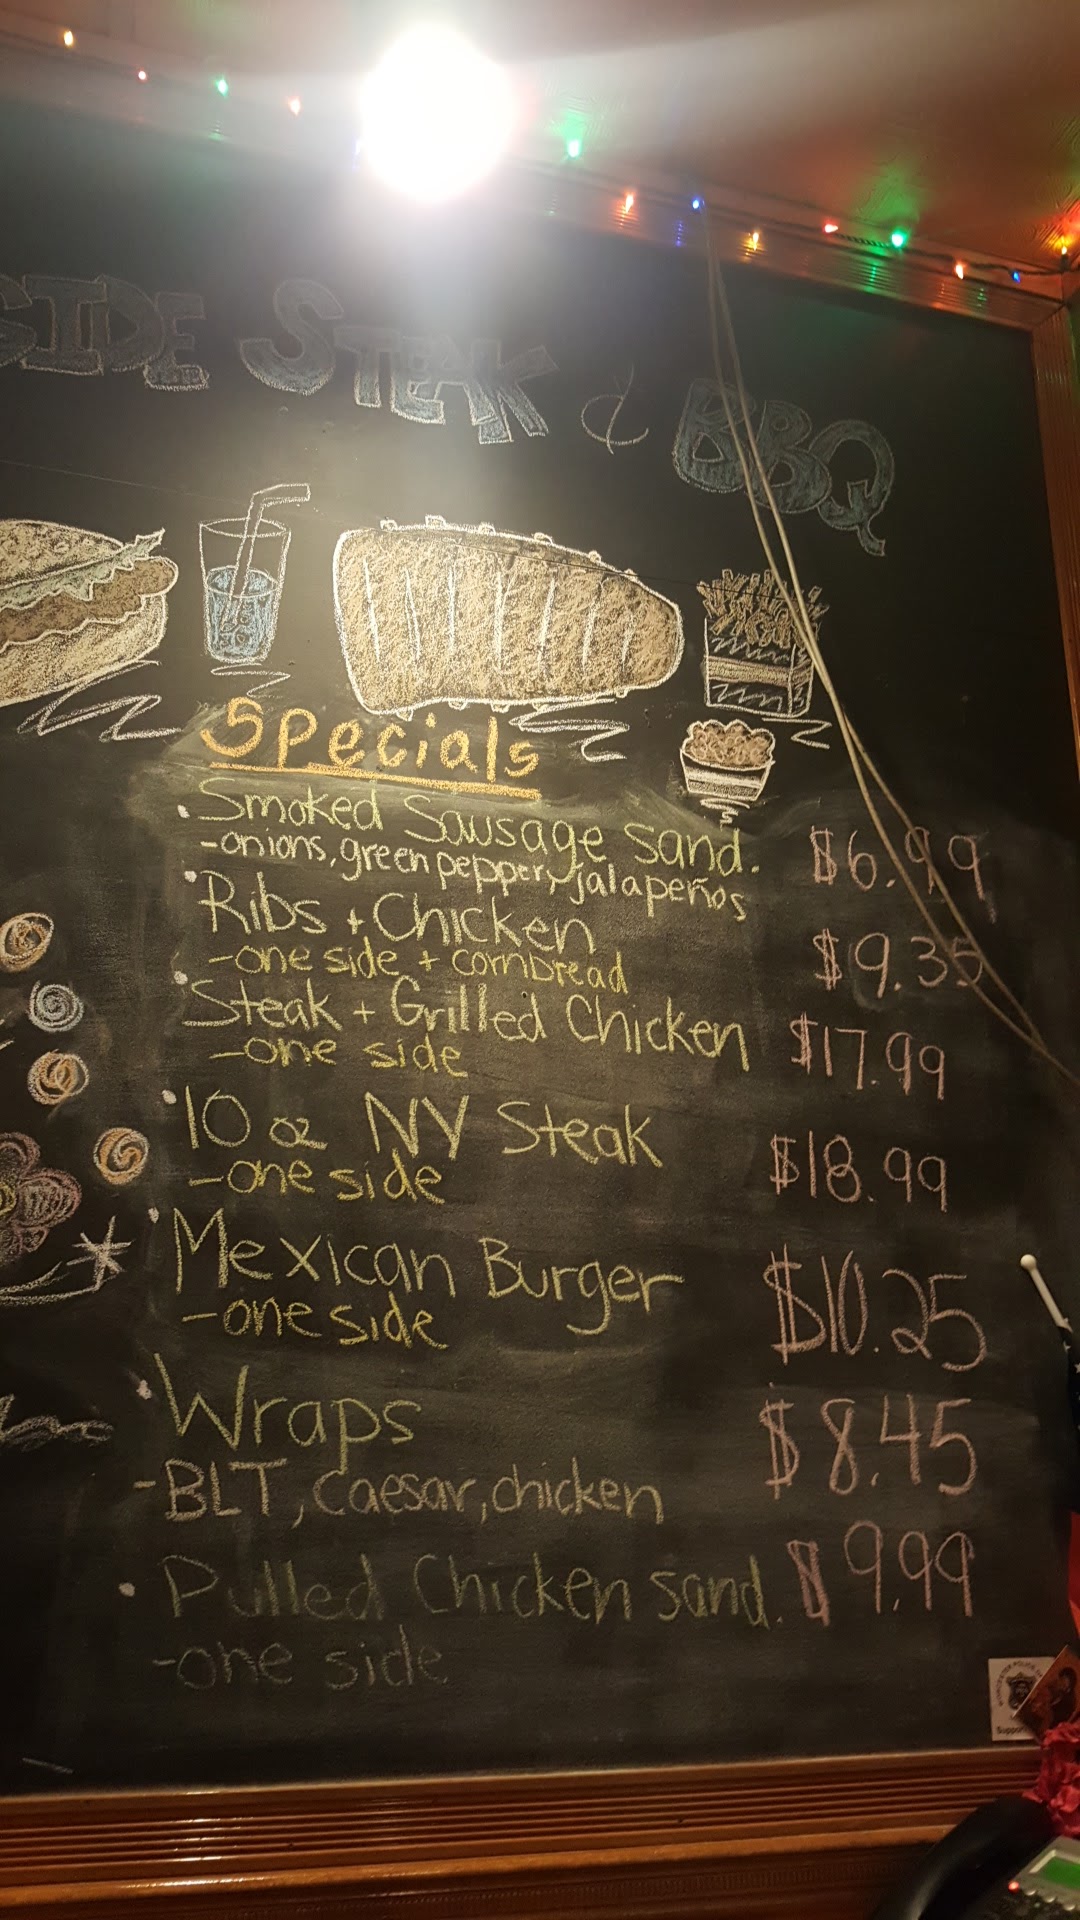 SIDE STEAK & BBQ
Specials
• Smoked Sausage Sand. $6.99
- onions, green pepper, jalapeños
• Ribs + Chicken $9.35
- one side + cornbread
• Steak + Grilled Chicken $17.99
- one side
• 10 oz NY Steak $18.99
- one side
• Mexican Burger $10.25
- one side
• Wraps $8.45
- BLT, Caesar, chicken
• Pulled Chicken sand. $9.99
- one side
Support